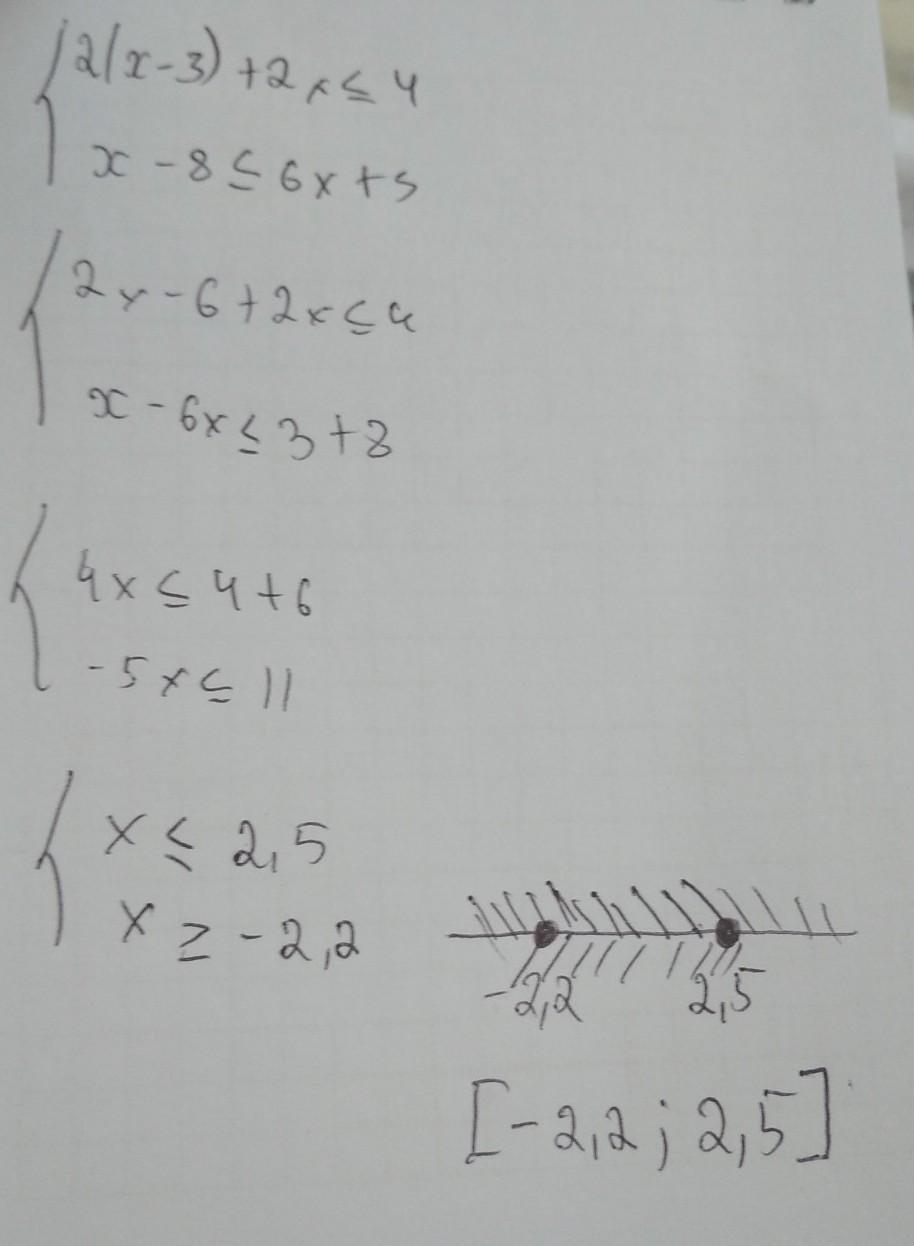 2(x-3)+2x≤4
x-8≤6x+3
2x-6+2x≤4
x-6x≤3+8
4x≤4+6
-5x≤11
x≤2,5
x≥-2,2
-2,2 2,5
[-2,2;2,5]